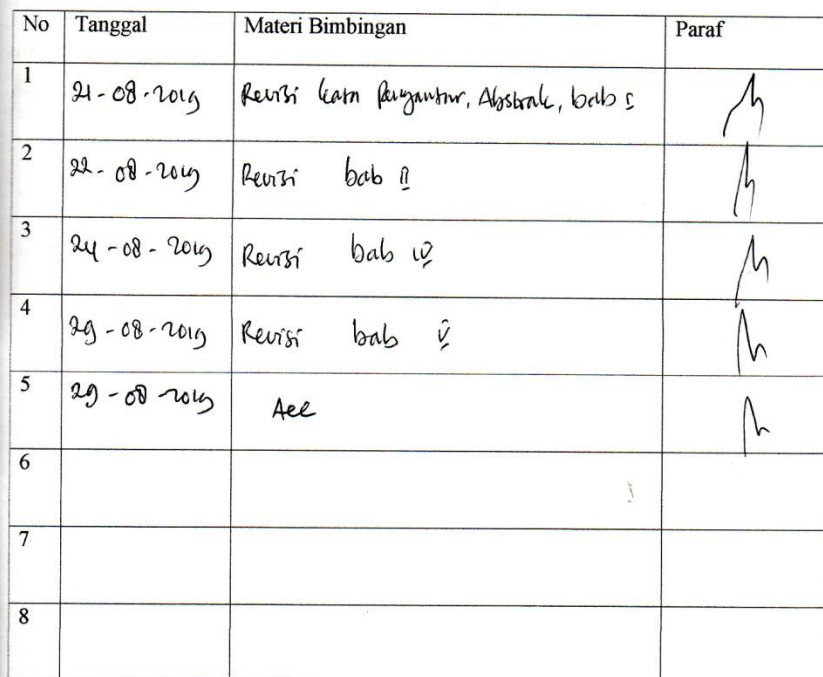 No Tanggal Materi Bimbingan Paraf
1 21-08-2019 Revisi kata pengantar, Abstrak, bab I
2 22-08-2019 Revisi bab II
3 24-08-2019 Revisi bab IV
4 29-08-2019 Revisi bab V
5 29-08-2019 Acc
6
7
8